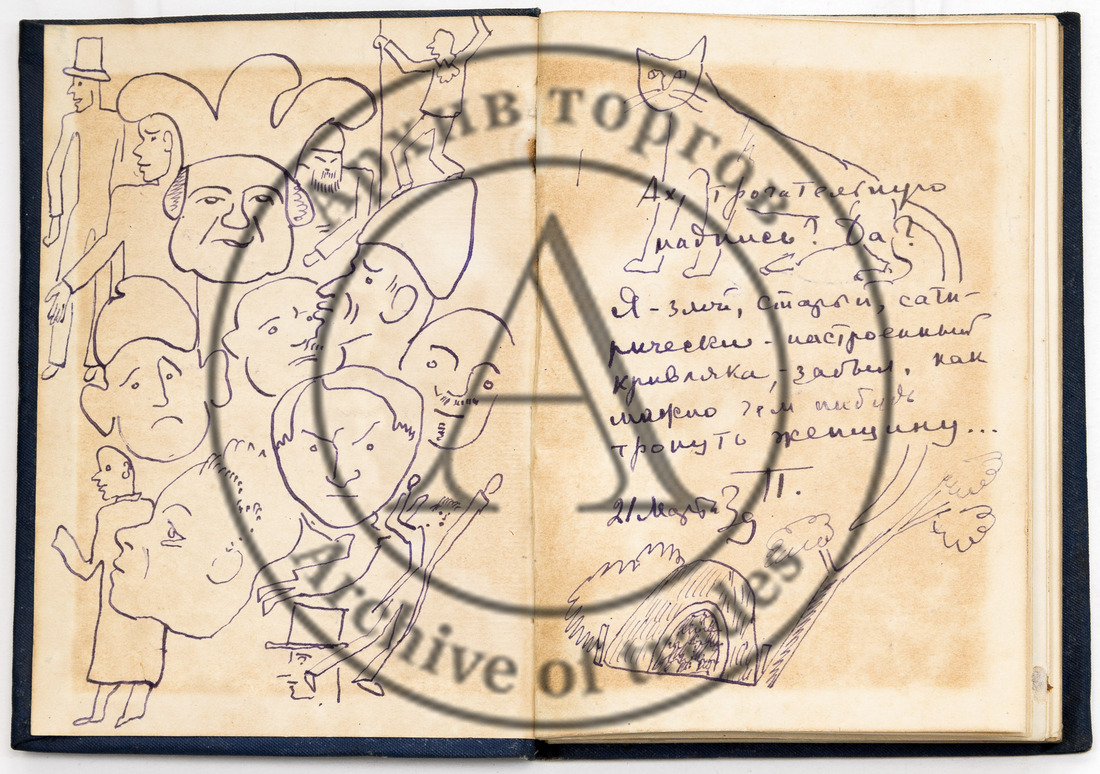 Ах, трогательную
надпись? Да?
Я - злой, старый, сати-
рически - настроенный
кривляка, - забыл, как
можно чем нибудь
тронуть женщину...
П.
21 Марта 39
Архив торгов
Archive of the